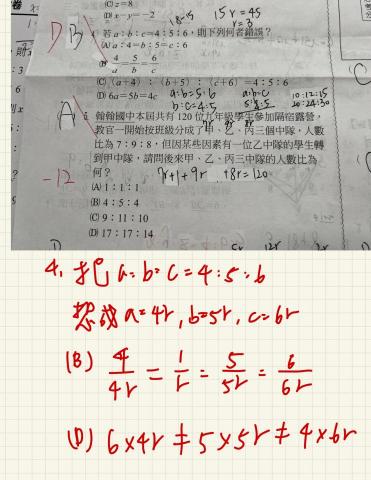 (C) z=8
(D) x:y=-2
18=15
15r=45
r=3
DB
4. 若a:b:c=4:5:6,則下列何者錯誤?
(A) a:4=b:5=c:6
(B) 4/a=5/b=6/c
(C) (a+4):(b+5):(c+6)=4:5:6
(D) 6a=5b=4c
a:b=5:6
b:c=4:5
a:b:c
10:12:15
A
翰翰國中本屆共有120位九年級學生參加隔宿露營,
教官一開始按班級分成了甲、乙、丙三個中隊,人數
比為7:9:8,但因某些因素有一位乙中隊的學生轉
到甲中隊,請問後來甲、乙、丙三中隊的人數比為
何?
7r+1+9r +8r=120
-12
(A) 1:1:1
(B) 4:5:4
(C) 9:11:10
(D) 17:17:14
4. 把a:b:c=4:5:6
想成a=4r,b=5r,c=6r
(B) 4/4r=1/r=5/5r=6/6r
(D) 6×4r≠5×5r≠4×6r